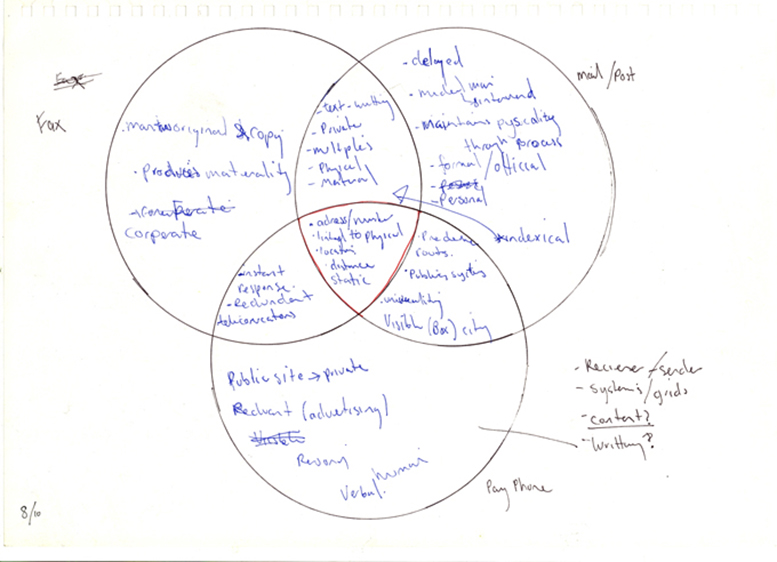 Fax
mail/Post
original & copy
· produces materiality
corporate
- text-writing
- Private
- multiples
- Physical
- Material
- delayed
- Maintains pysicality
through process
- formal/official
- Personal
indexical
· adress/number
· linked to physical
· location
distance
static
routs.
· Publics system
· universality
Visible (Box) city
- instant
response.
- Redundant
Public site → private
(advertising)
human
Verbal.
Pay Phone
- Reciever/sender
- systems/grids
- content?
- Writting?
8/10